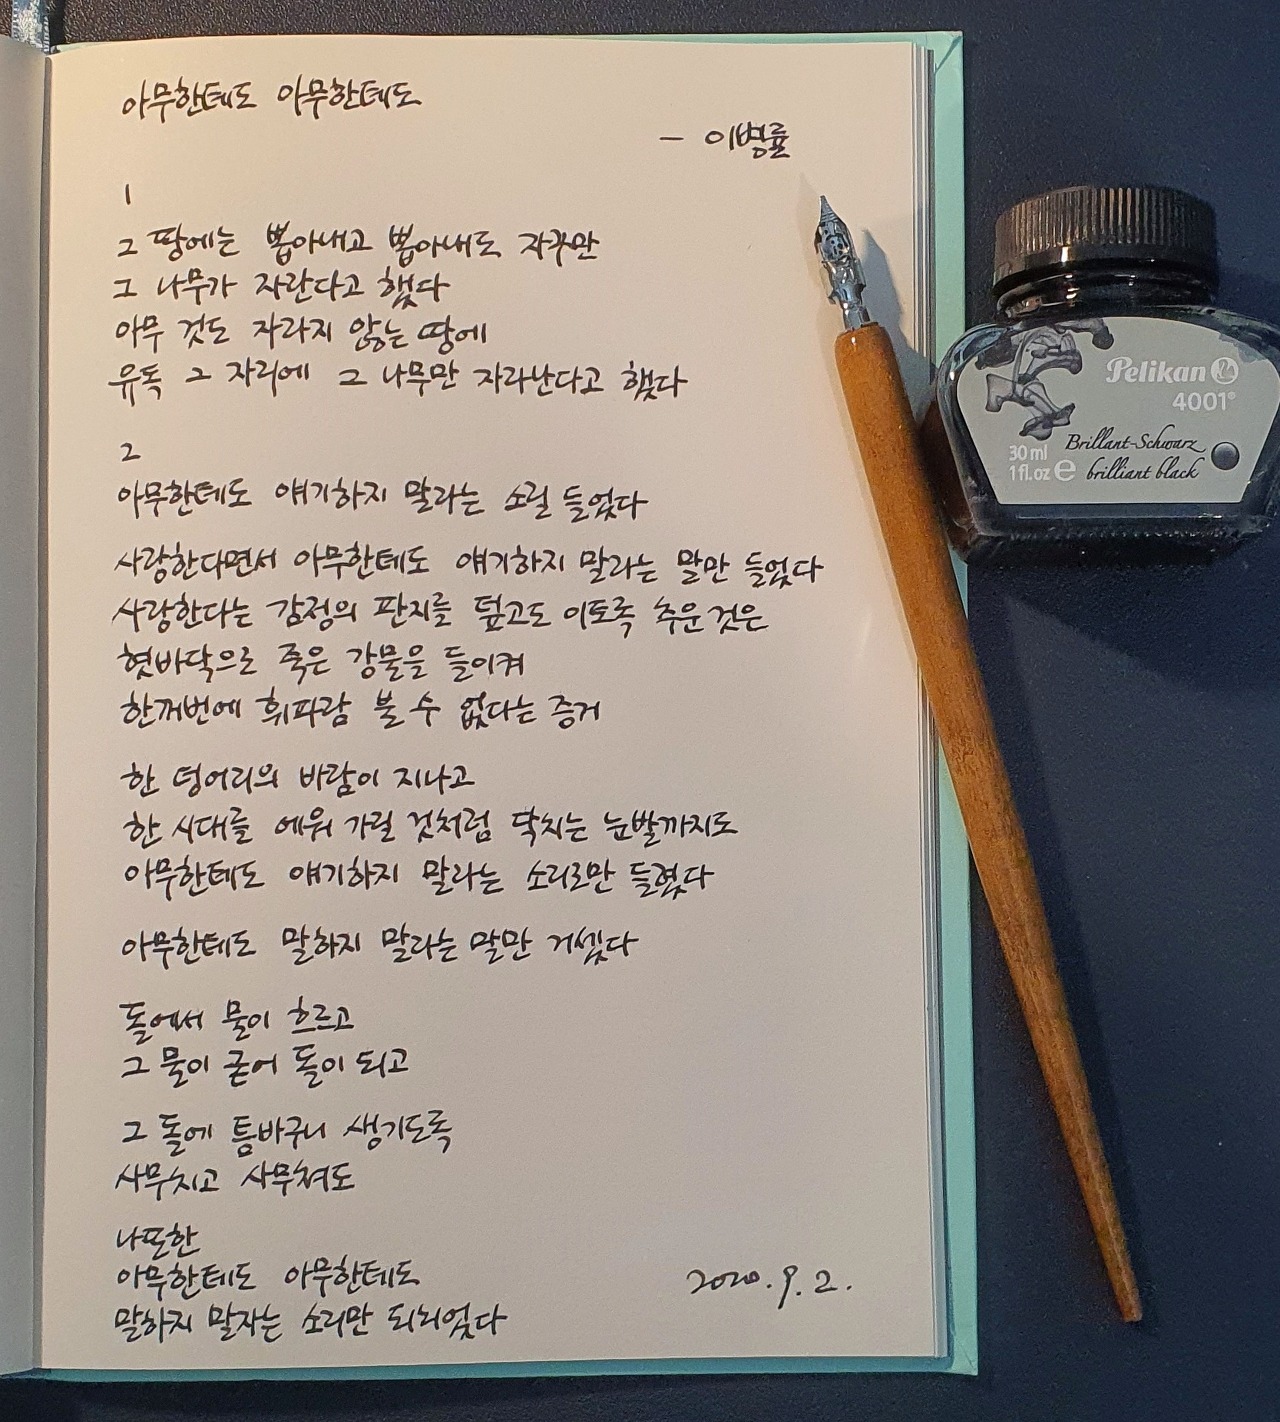 아무한테도 아무한테도
- 이병률
1
그 땅에는 뽑아내고 뽑아내도 자꾸만
그 나무가 자란다고 했다
아무 것도 자라지 않는 땅에
유독 그 자리에 그 나무만 자라난다고 했다
2
아무한테도 얘기하지 말라는 소릴 들었다
사랑한다면서 아무한테도 얘기하지 말라는 말만 들었다
사랑한다는 감정의 판지를 덮고도 이토록 추운 것은
혓바닥으로 죽은 강물을 들이켜
한꺼번에 휘파람 불 수 없다는 증거
한 덩어리의 바람이 지나고
한 시대를 에워 가릴 것처럼 닥치는 눈발까지도
아무한테도 얘기하지 말라는 소리로만 들렸다
아무한테도 말하지 말라는 말만 거셌다
돌에서 물이 흐르고
그 물이 굳어 돌이 되고
그 돌에 틈바구니 생기도록
사무치고 사무쳐도
나또한
아무한테도 아무한테도
말하지 말자는 소리만 되뇌었다
2020. 9. 2.
Pelikan
4001®
Brillant-Schwarz
brilliant black
30 ml
1 fl. oz e